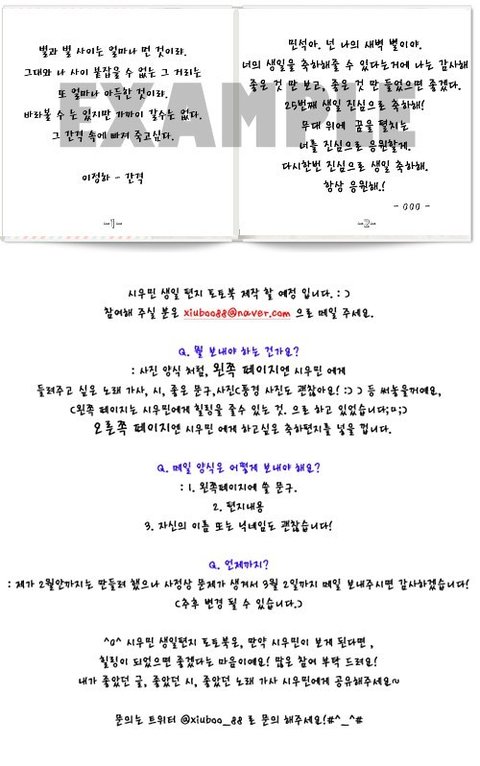 별과 별 사이는 얼마나 먼 것이랴.
그대와 나 사이 붙잡을 수 없는 그 거리는
또 얼마나 아득한 것이랴.
바라볼 수 는 있지만 가까이 갈수는 없다.
그 간격 속에 빠져 죽고싶다.
이정하 - 간격
-1-
민석아. 넌 나의 새벽 별이야.
너의 생일을 축하해줄 수 있다는거에 나는 감사해
좋은 것 만 보고, 좋은 것 만 들었으면 좋겠다.
25번째 생일 진심으로 축하해!
무대 위에 꿈을 펼치는
너를 진심으로 응원할게.
다시한번 진심으로 생일 축하해.
항상 응원해.!
- ㅇㅇㅇ -
-2-
EXAMPLE
시우민 생일 편지 포토북 제작 할 예정 입니다. : )
참여해 주실 분은 xiuboo88@naver.com 으로 메일 주세요.
Q. 뭘 보내야 하는 건가요?
: 사진 양식 처럼, 왼쪽 페이지엔 시우민 에게
들려주고 싶은 노래 가사, 시, 좋은 문구,사진(풍경 사진도 괜찮아요! :) ) 등 써놓을꺼예요,
(왼쪽 페이지는 시우민에게 힐링을 줄수 있는 것. 으로 하고 있었습니다;ㅁ;)
오른쪽 페이지엔 시우민 에게 하고싶은 축하편지를 넣을 겁니다.
Q. 메일 양식은 어떻게 보내야 해요?
: 1. 왼쪽페이지에 쓸 문구.
2. 편지내용
3. 자신의 이름 또는 닉네임도 괜찮습니다!
Q. 언제까지?
: 제가 2월안까지는 만들려 했으나 사정상 문제가 생겨서 3월 2일까지 메일 보내주시면 감사하겠습니다!
(추후 변경 될 수 있습니다.)
^0^ 시우민 생일편지 포토북은, 만약 시우민이 보게 된다면 ,
힐링이 되었으면 좋겠다는 마음이예요! 많은 참여 부탁 드려요!
내가 좋았던 글, 좋았던 시, 좋았던 노래 가사 시우민에게 공유해주세요~
문의는 트위터 @xiuboo_88 로 문의 해주세요!#^_^#